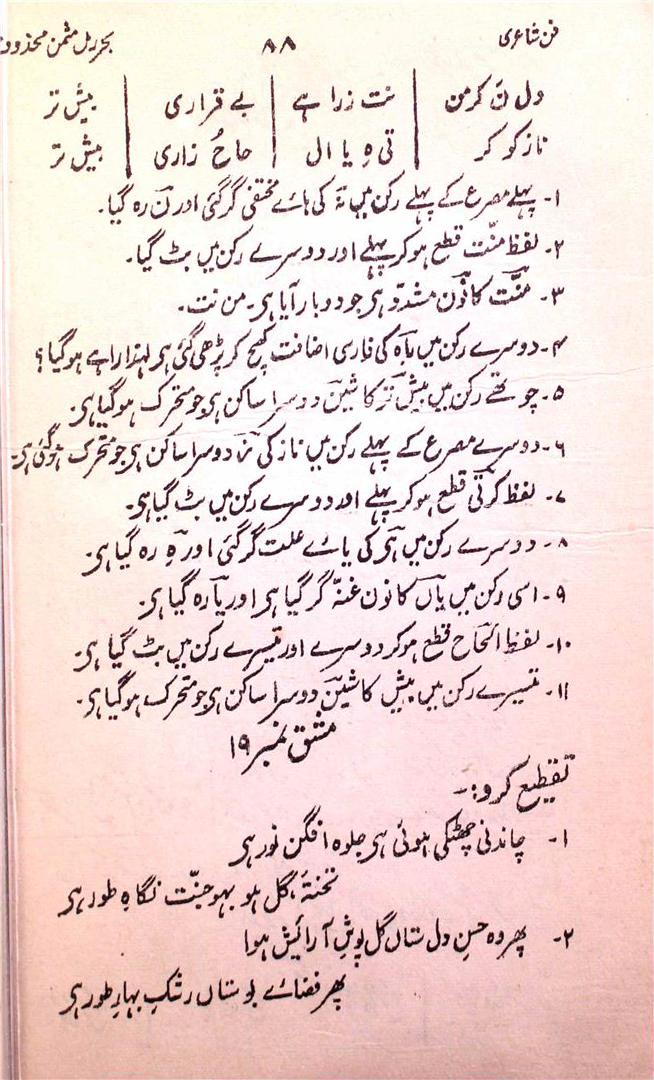 فن شاعری ۸۸ بحر رمل مثمن محذوف
دل نَ کر من | نت زرا ہے | بے قراری | بیش تر
ناز کو کر | تی ہِ یا ال | حاحُ زاری | بیش تر
۱۔ پہلے مصرع کے پہلے رکن میں نہ کی ہائے مختفی گر گئی اور نَ رہ گیا۔
۲۔ لفظ منّت قطع ہو کر پہلے اور دوسرے رکن میں بٹ گیا۔
۳۔ منّت کا نون مشدّد ہی جو دوبار آیا ہی۔ من نت۔
۴۔ دوسرے رکن میں راہِ کی فارسی اضافت کھچ کر پڑھی گئی ہی لہذا راہے ہو گیا؟
۵۔ چوتھے رکن میں بیش تر کا شین دوسرا ساکن ہی جو متحرک ہو گیا ہی۔
۶۔ دوسرے مصرع کے پہلے رکن میں ناز کی ز دوسرا ساکن ہی جو متحرک ہو گئی ہی۔
۷۔ لفظ کرتی قطع ہو کر پہلے اور دوسرے رکن میں بٹ گیا ہی۔
۸۔ دوسرے رکن میں ہی کی یائے علت گر گئی اور ہِ رہ گیا ہی۔
۹۔ اسی رکن میں یاں کا نون غنہّ گر گیا ہی اور یا رہ گیا ہی۔
۱۰۔ لفظ الحاح قطع ہو کر دوسرے اور تیسرے رکن میں بٹ گیا ہی۔
۱۱۔ تیسرے رکن میں بیش کا شین دوسرا ساکن ہی جو متحرک ہو گیا ہی۔
مشق نمبر ۱۹
تقطیع کرو:۔
۱۔ چاندنی چھٹکی ہوئی ہی جلوہ افگن نور ہی
تختۂ گل ہو بہو جنّت نگاہِ طور ہی
۲۔ پھر وہ حسنِ دل ستاں گل پوشِ آرائیش ہوا
پھر فضائے بوستاں رشکِ بہارِ طور ہی